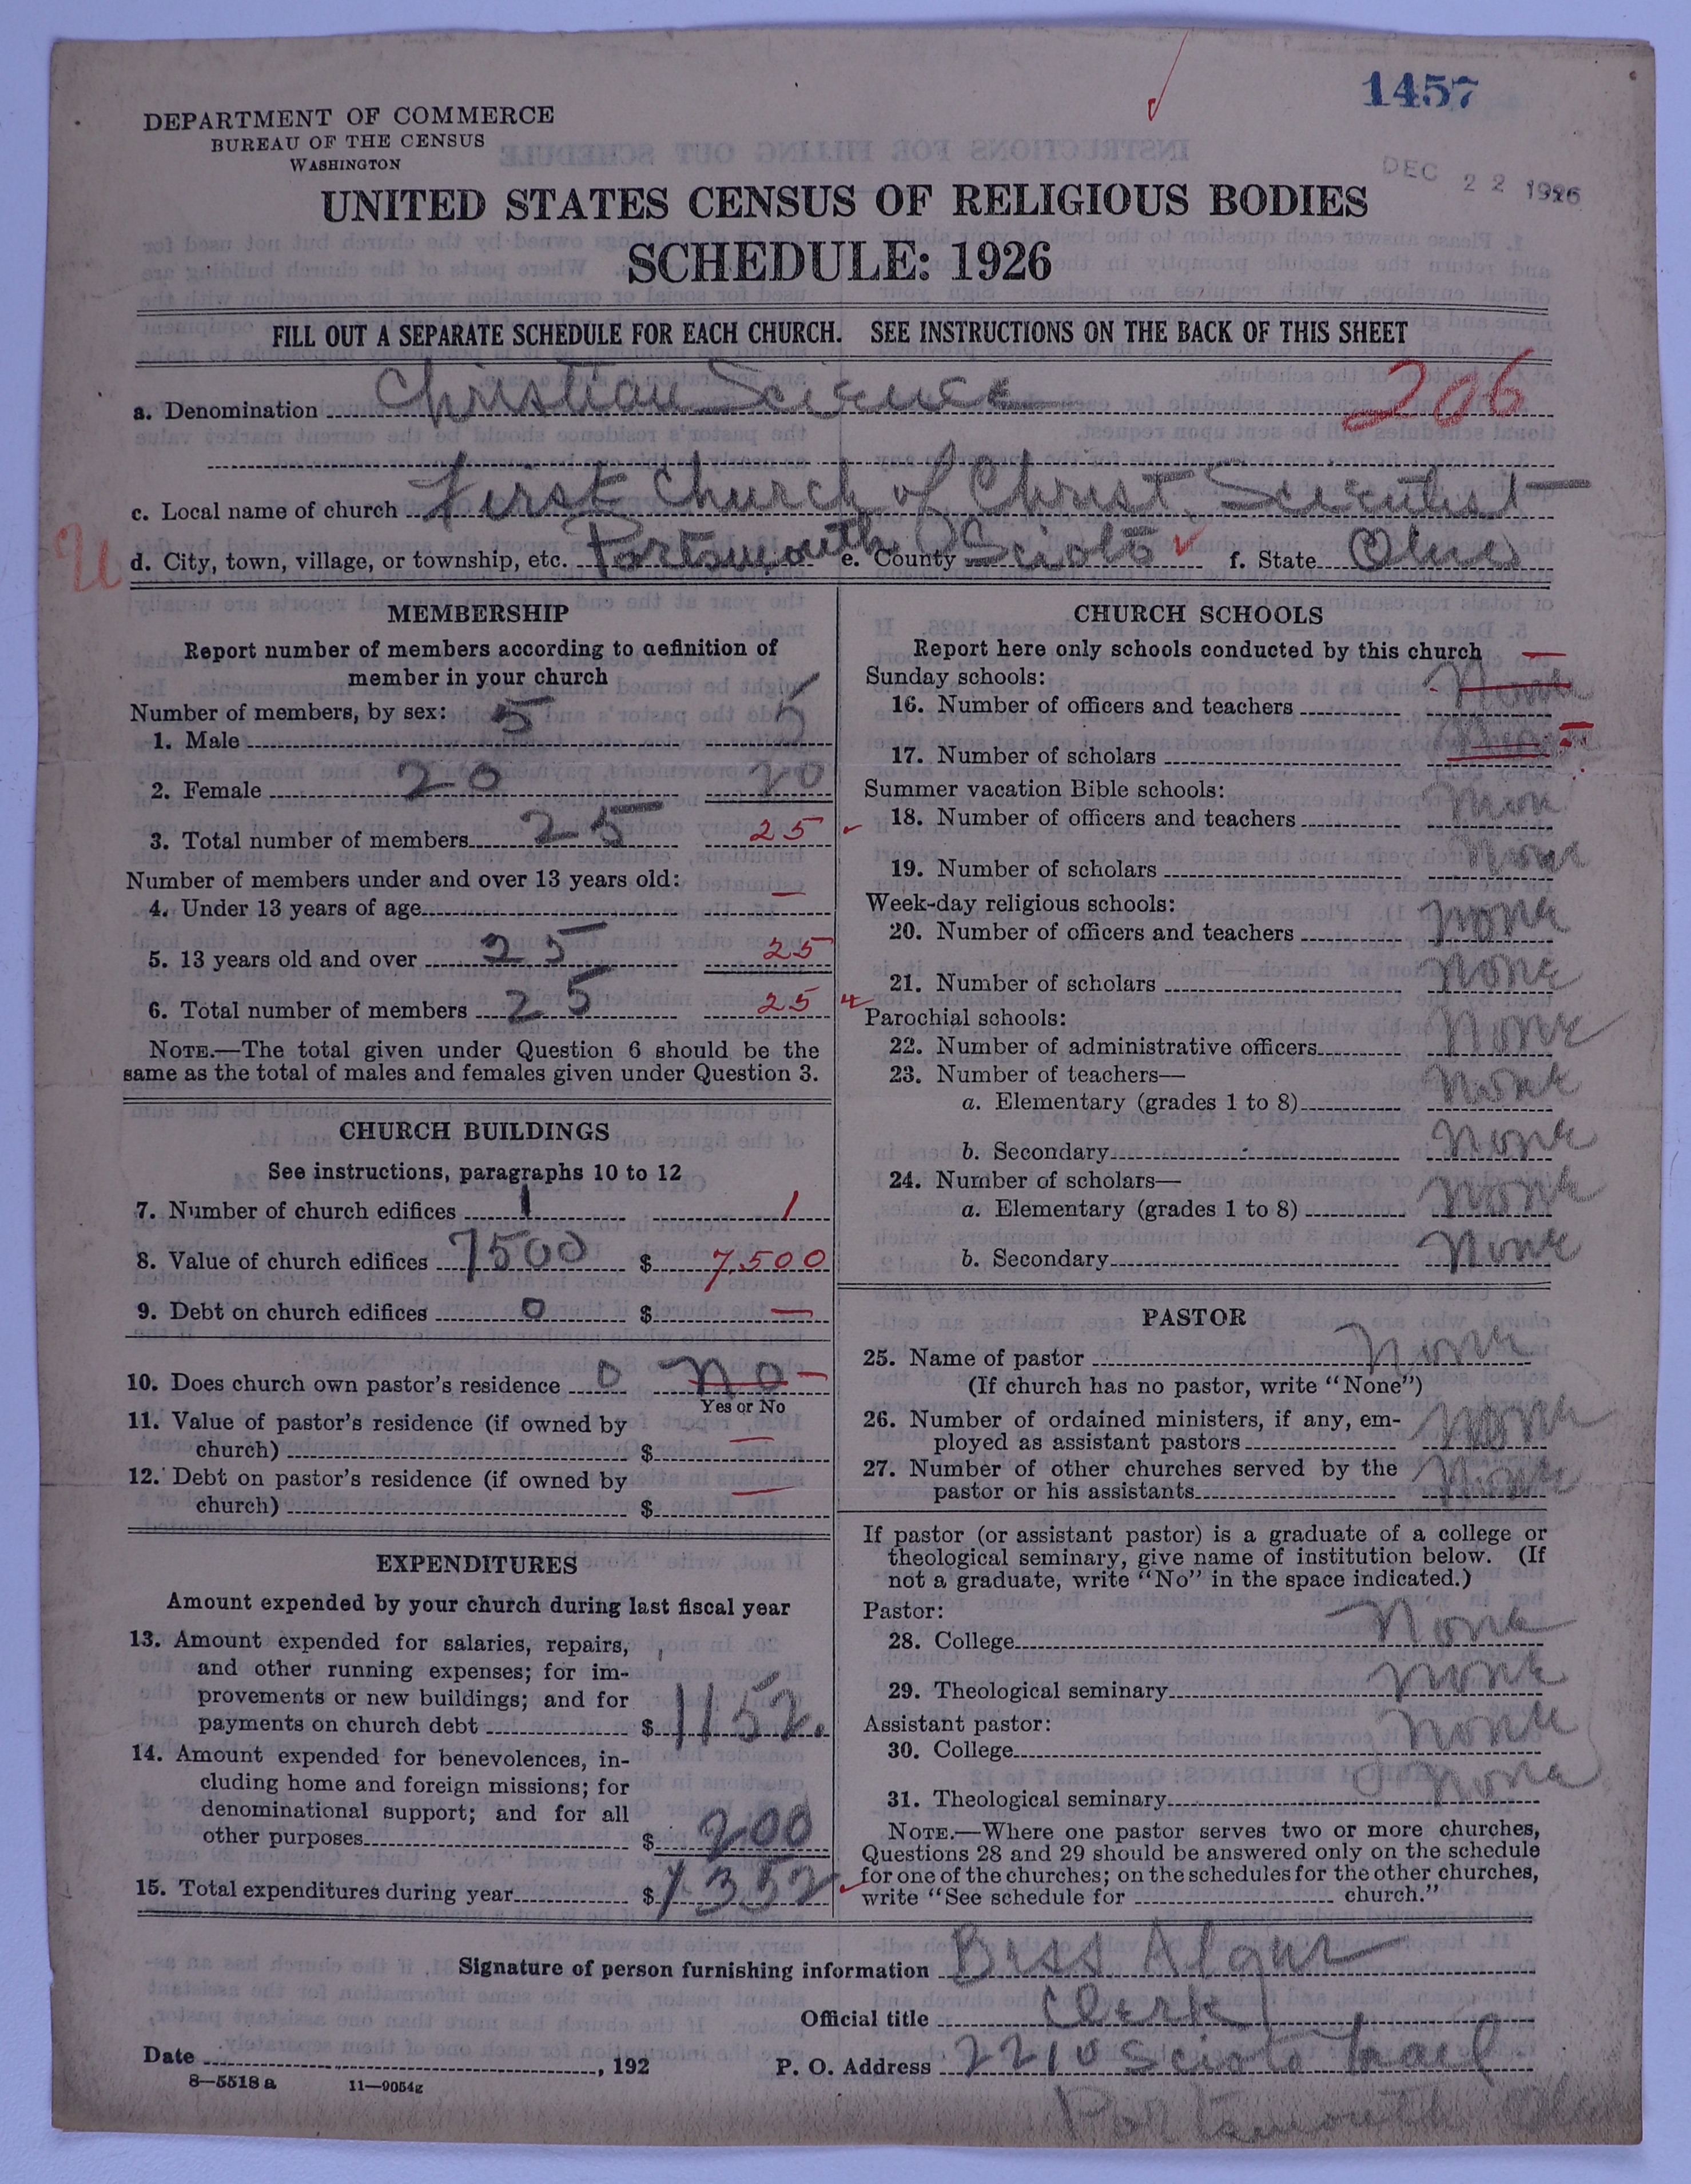 1457
DEPARTMENT OF COMMERCE
BUREAU OF THE CENSUS
WASHINGTON
DEC 22 1926
UNITED STATES CENSUS OF RELIGIOUS BODIES
SCHEDULE: 1926
FILL OUT A SEPARATE SCHEDULE FOR EACH CHURCH. SEE INSTRUCTIONS ON THE BACK OF THIS SHEET
a. Denomination Christian Science 206
c. Local name of church First Church of Christ, Scientist
U d. City, town, village, or township, etc. Portsmouth, O e. County Scioto f. State Ohio
MEMBERSHIP
Report number of members according to definition of
member in your church
Number of members, by sex:
1. Male 5 5
2. Female 20 20
3. Total number of members 25 25
Number of members under and over 13 years old:
4. Under 13 years of age —
5. 13 years old and over 25 25
6. Total number of members 25 25
NOTE.—The total given under Question 6 should be the
same as the total of males and females given under Question 3.
CHURCH BUILDINGS
See instructions, paragraphs 10 to 12
7. Number of church edifices 1 1
8. Value of church edifices 7500 $ 7,500
9. Debt on church edifices 0 $ —
10. Does church own pastor's residence 0 No —
Yes or No
11. Value of pastor's residence (if owned by
church) $ —
12. Debt on pastor's residence (if owned by
church) $ —
EXPENDITURES
Amount expended by your church during last fiscal year
13. Amount expended for salaries, repairs,
and other running expenses; for im-
provements or new buildings; and for
payments on church debt $ 1152.
14. Amount expended for benevolences, in-
cluding home and foreign missions; for
denominational support; and for all
other purposes $ 200
15. Total expenditures during year $ 1352
CHURCH SCHOOLS
Report here only schools conducted by this church
Sunday schools: —
16. Number of officers and teachers None
17. Number of scholars None —
Summer vacation Bible schools:
18. Number of officers and teachers None
19. Number of scholars None
Week-day religious schools:
20. Number of officers and teachers None
21. Number of scholars None
Parochial schools:
22. Number of administrative officers None
23. Number of teachers—
a. Elementary (grades 1 to 8) None
b. Secondary None
24. Number of scholars—
a. Elementary (grades 1 to 8) None
b. Secondary None
PASTOR
25. Name of pastor None
(If church has no pastor, write "None")
26. Number of ordained ministers, if any, em-
ployed as assistant pastors None
27. Number of other churches served by the
pastor or his assistants None
If pastor (or assistant pastor) is a graduate of a college or
theological seminary, give name of institution below. (If
not a graduate, write "No" in the space indicated.)
Pastor:
28. College None
29. Theological seminary None
Assistant pastor:
30. College None
31. Theological seminary None
NOTE.—Where one pastor serves two or more churches,
Questions 28 and 29 should be answered only on the schedule
for one of the churches; on the schedules for the other churches,
write "See schedule for church."
Signature of person furnishing information Bess
Official title Clerk
Date , 192 P. O. Address 2210 Scioto Trail
8—5518 a 11—9054g
Portsmouth Ohio